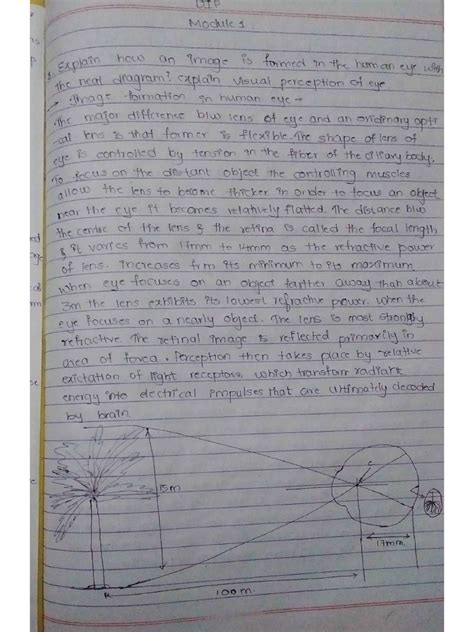 DIP
Module 1
Explain how an image is formed in the human eye with
the neat diagram? Explain visual perception of eye
→ Image formation in human eye →
The major difference b/w lens of eye and an oridinary opti
-cal lens is that former is flexible. The shape of lens of
eye is controlled by tension in the fiber of the ciliary body.
To focus on the distant object the controlling muscles
allow the lens to become thicker in order to focus an object
near the eye it becomes relatively flatted. The distance b/w
the centre of the lens & the retina is called the focal length
& it varies from 17mm to 14mm as the refractive power
of lens. increases frm its minimum to its maximum,
when eye focuses on an object farther away than about
3m the lens exhibits its lowest refractive power. when the
eye focuses on a nearly object. The lens is most strongly
refractive. The retinal image is reflected primarily in
area of fovea. Perception then takes place by relative
exictation of light receptors, which transform radiant
energy into electrical impulses that are ultimately decoded
by brain.
15m
C
17mm
100m